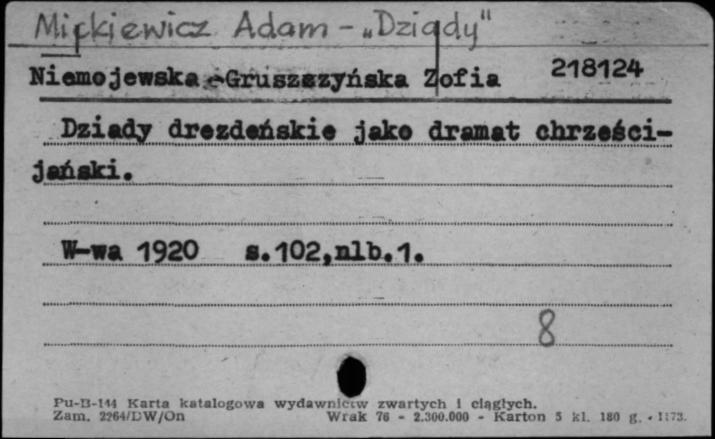 Mickiewicz Adam - „Dziady"
Niemojewska-Gruszczyńska Zofia 218124
Dziady drezdeńskie jako dramat chrześci-
jański.
W-wa 1920 s.102,nlb.1.
8
Pu-B-144 Karta katalogowa wydawnictw zwartych i ciągłych.
Zam. 2264/DW/On Wrak 76 - 2.300.000 - Karton 5 kl. 180 g. - 1173.